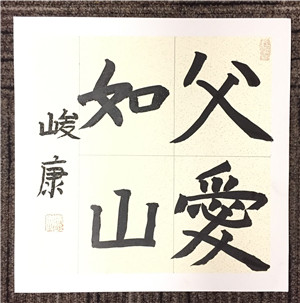 父愛
如山
峻康